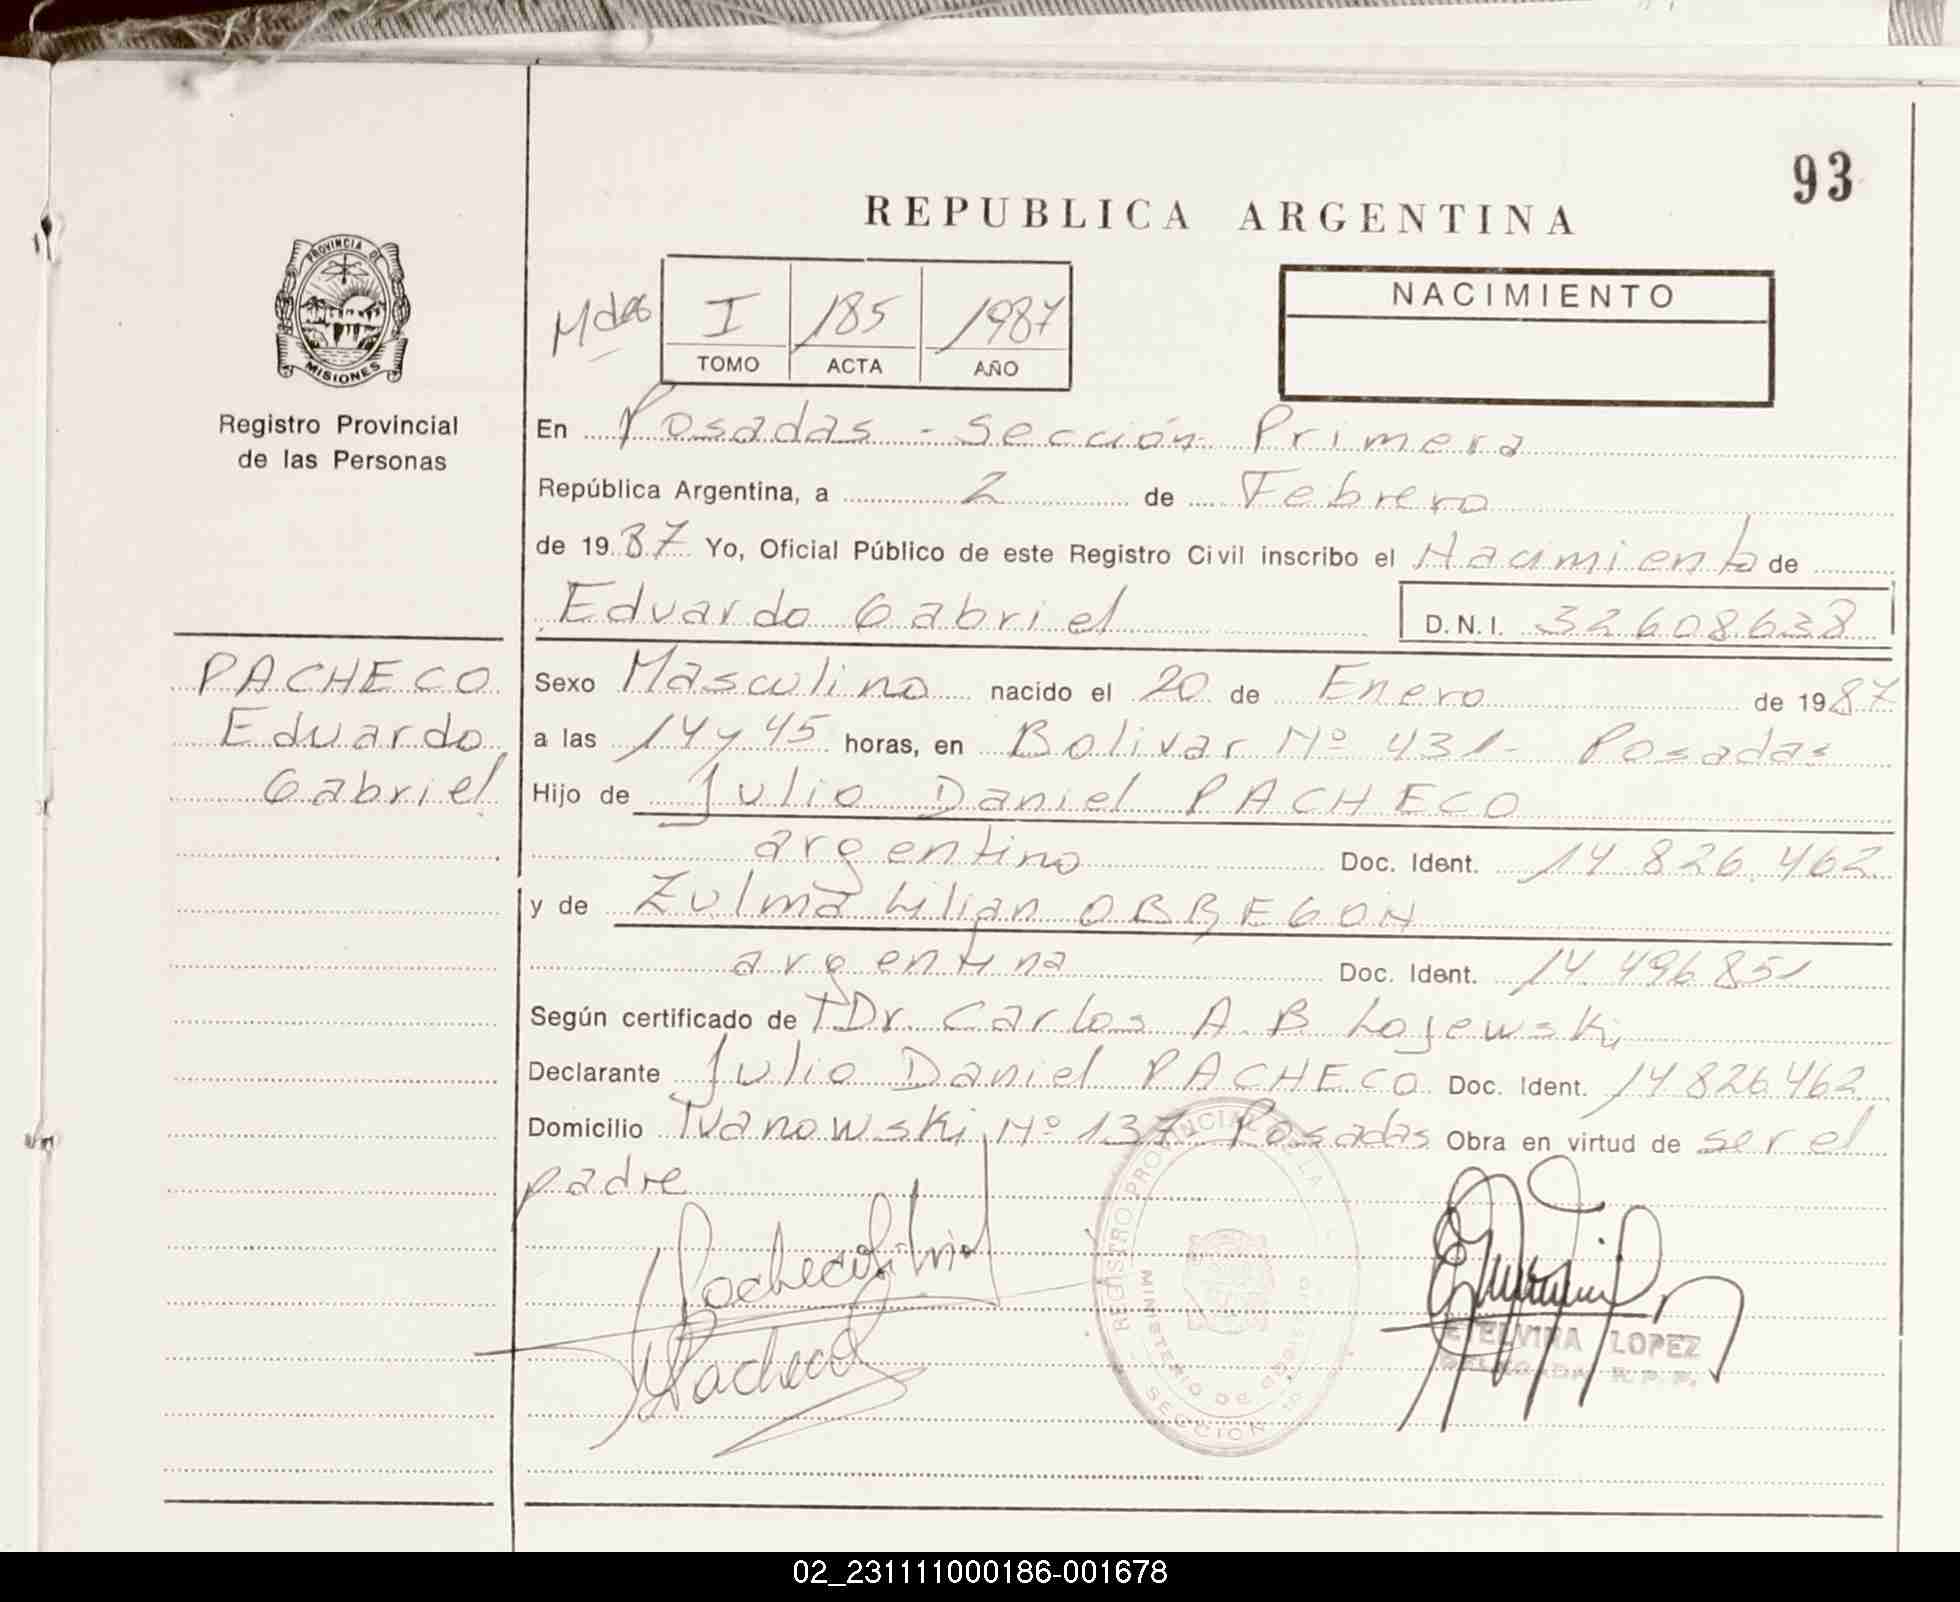 93
REPUBLICA ARGENTINA
PROVINCIA DE
MISIONES
Registro Provincial
de las Personas
Mdes I 185 1987
TOMO ACTA AÑO
NACIMIENTO
En Posadas - Sección Primera
República Argentina, a 2 de Febrero
de 1987 Yo, Oficial Público de este Registro Civil inscribo el Nacimiento de
Eduardo Gabriel D.N.I. 32608638
PACHECO
Eduardo
Gabriel
Sexo Masculino nacido el 20 de Enero de 1987
a las 14 y 45 horas, en Bolivar Nº 431 - Posadas
Hijo de Julio Daniel PACHECO
argentino Doc. Ident. 14.826.462
y de Zulma Lilian OBREGON
argentina Doc. Ident. 14.496.851
Según certificado de Dr. Carlos A. B Lojewski
Declarante Julio Daniel PACHECO Doc. Ident. 14.826.462
Domicilio Ivanowski Nº 137 Posadas Obra en virtud de ser el
padre
Pacheco
Pacheco
REGISTRO PROVINCIAL DE LA
MINISTERIO DE GOBIERNO
SECCION 1a
ETELVIRA LOPEZ
DELEGADA R. P. P.
02_231111000186-001678